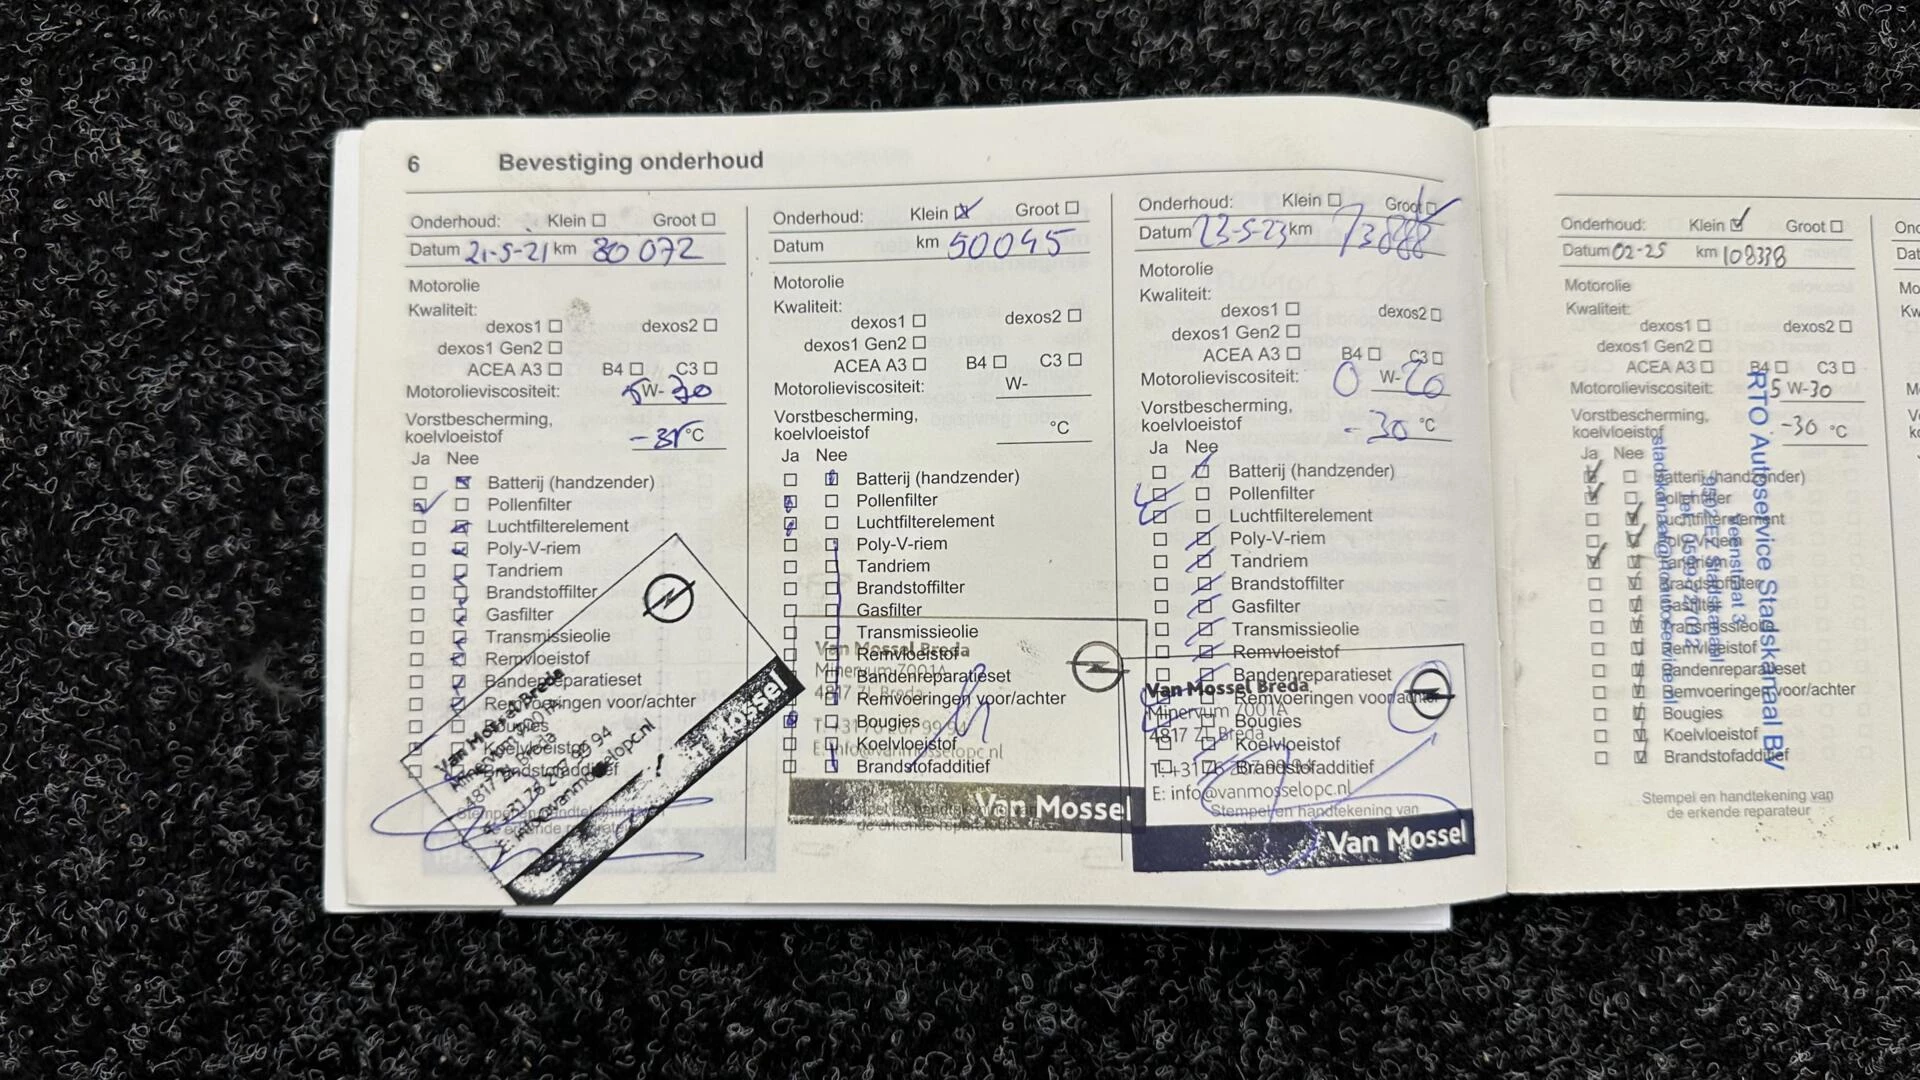 6 Bevestiging onderhoud
Onderhoud: Klein ☐ Groot ☐
Datum 21-5-21 km 30 072
Motorolie
Kwaliteit:
dexos1 ☐ dexos2 ☐
dexos1 Gen2 ☐
ACEA A3 ☐ B4 ☐ C3 ☐
Motorolieviscositeit: 5W-30
Vorstbescherming,
koelvloeistof °C
Ja Nee
Batterij (handzender)
Pollenfilter
Luchtfilterelement
Poly-V-riem
Tandriem
Brandstoffilter
Gasfilter
Transmissieolie
Remvloeistof
Bandenreparatieset
Remvoeringen voor/achter
Bougies
Koelvloeistof
Brandstofadditief
Van Mossel Breda
4817 ZL Breda
Van Mossel
Onderhoud: Klein ☒ Groot ☐
Datum km 50045
Motorolie
Kwaliteit:
dexos1 ☐ dexos2 ☐
dexos1 Gen2 ☐
ACEA A3 ☐ B4 ☐ C3 ☐
Motorolieviscositeit: W-
Vorstbescherming,
koelvloeistof °C
Ja Nee
Batterij (handzender)
Pollenfilter
Luchtfilterelement
Poly-V-riem
Tandriem
Brandstoffilter
Gasfilter
Transmissieolie
Remvloeistof
Bandenreparatieset
Remvoeringen voor/achter
Bougies
Koelvloeistof
Brandstofadditief
Van Mossel Breda
Minervum 7001A
4817 ZL Breda
E: info@vanmosselopc.nl
Van Mossel
Onderhoud: Klein ☐ Groot ☑
Datum 23-5-23 km
Motorolie
Kwaliteit:
dexos1 ☐ dexos2 ☐
dexos1 Gen2 ☐
ACEA A3 ☐ B4 ☐ C3 ☐
Motorolieviscositeit: 0 W-20
Vorstbescherming,
koelvloeistof -30 °C
Ja Nee
Batterij (handzender)
Pollenfilter
Luchtfilterelement
Poly-V-riem
Tandriem
Brandstoffilter
Gasfilter
Transmissieolie
Remvloeistof
Bandenreparatieset
Remvoeringen voor/achter
Bougies
Koelvloeistof
Brandstofadditief
Van Mossel Breda
Minervum 7001A
4817 ZL Breda
E: info@vanmosselopc.nl
Stempel en handtekening van
Van Mossel
Onderhoud: Klein ☑ Groot ☐
Datum 02-25 km 108338
Motorolie
Kwaliteit:
dexos1 ☐ dexos2 ☐
dexos1 Gen2 ☐
ACEA A3 ☐ B4 ☐ C3 ☐
Motorolieviscositeit: 5 W-30
Vorstbescherming,
koelvloeistof -30 °C
Ja Nee
Batterij (handzender)
Pollenfilter
Luchtfilterelement
Poly-V-riem
Tandriem
Brandstoffilter
Gasfilter
Transmissieolie
Remvloeistof
Bandenreparatieset
Remvoeringen voor/achter
Bougies
Koelvloeistof
Brandstofadditief
RTO Autoservice Stadskanaal BV
Stempel en handtekening van
de erkende reparateur